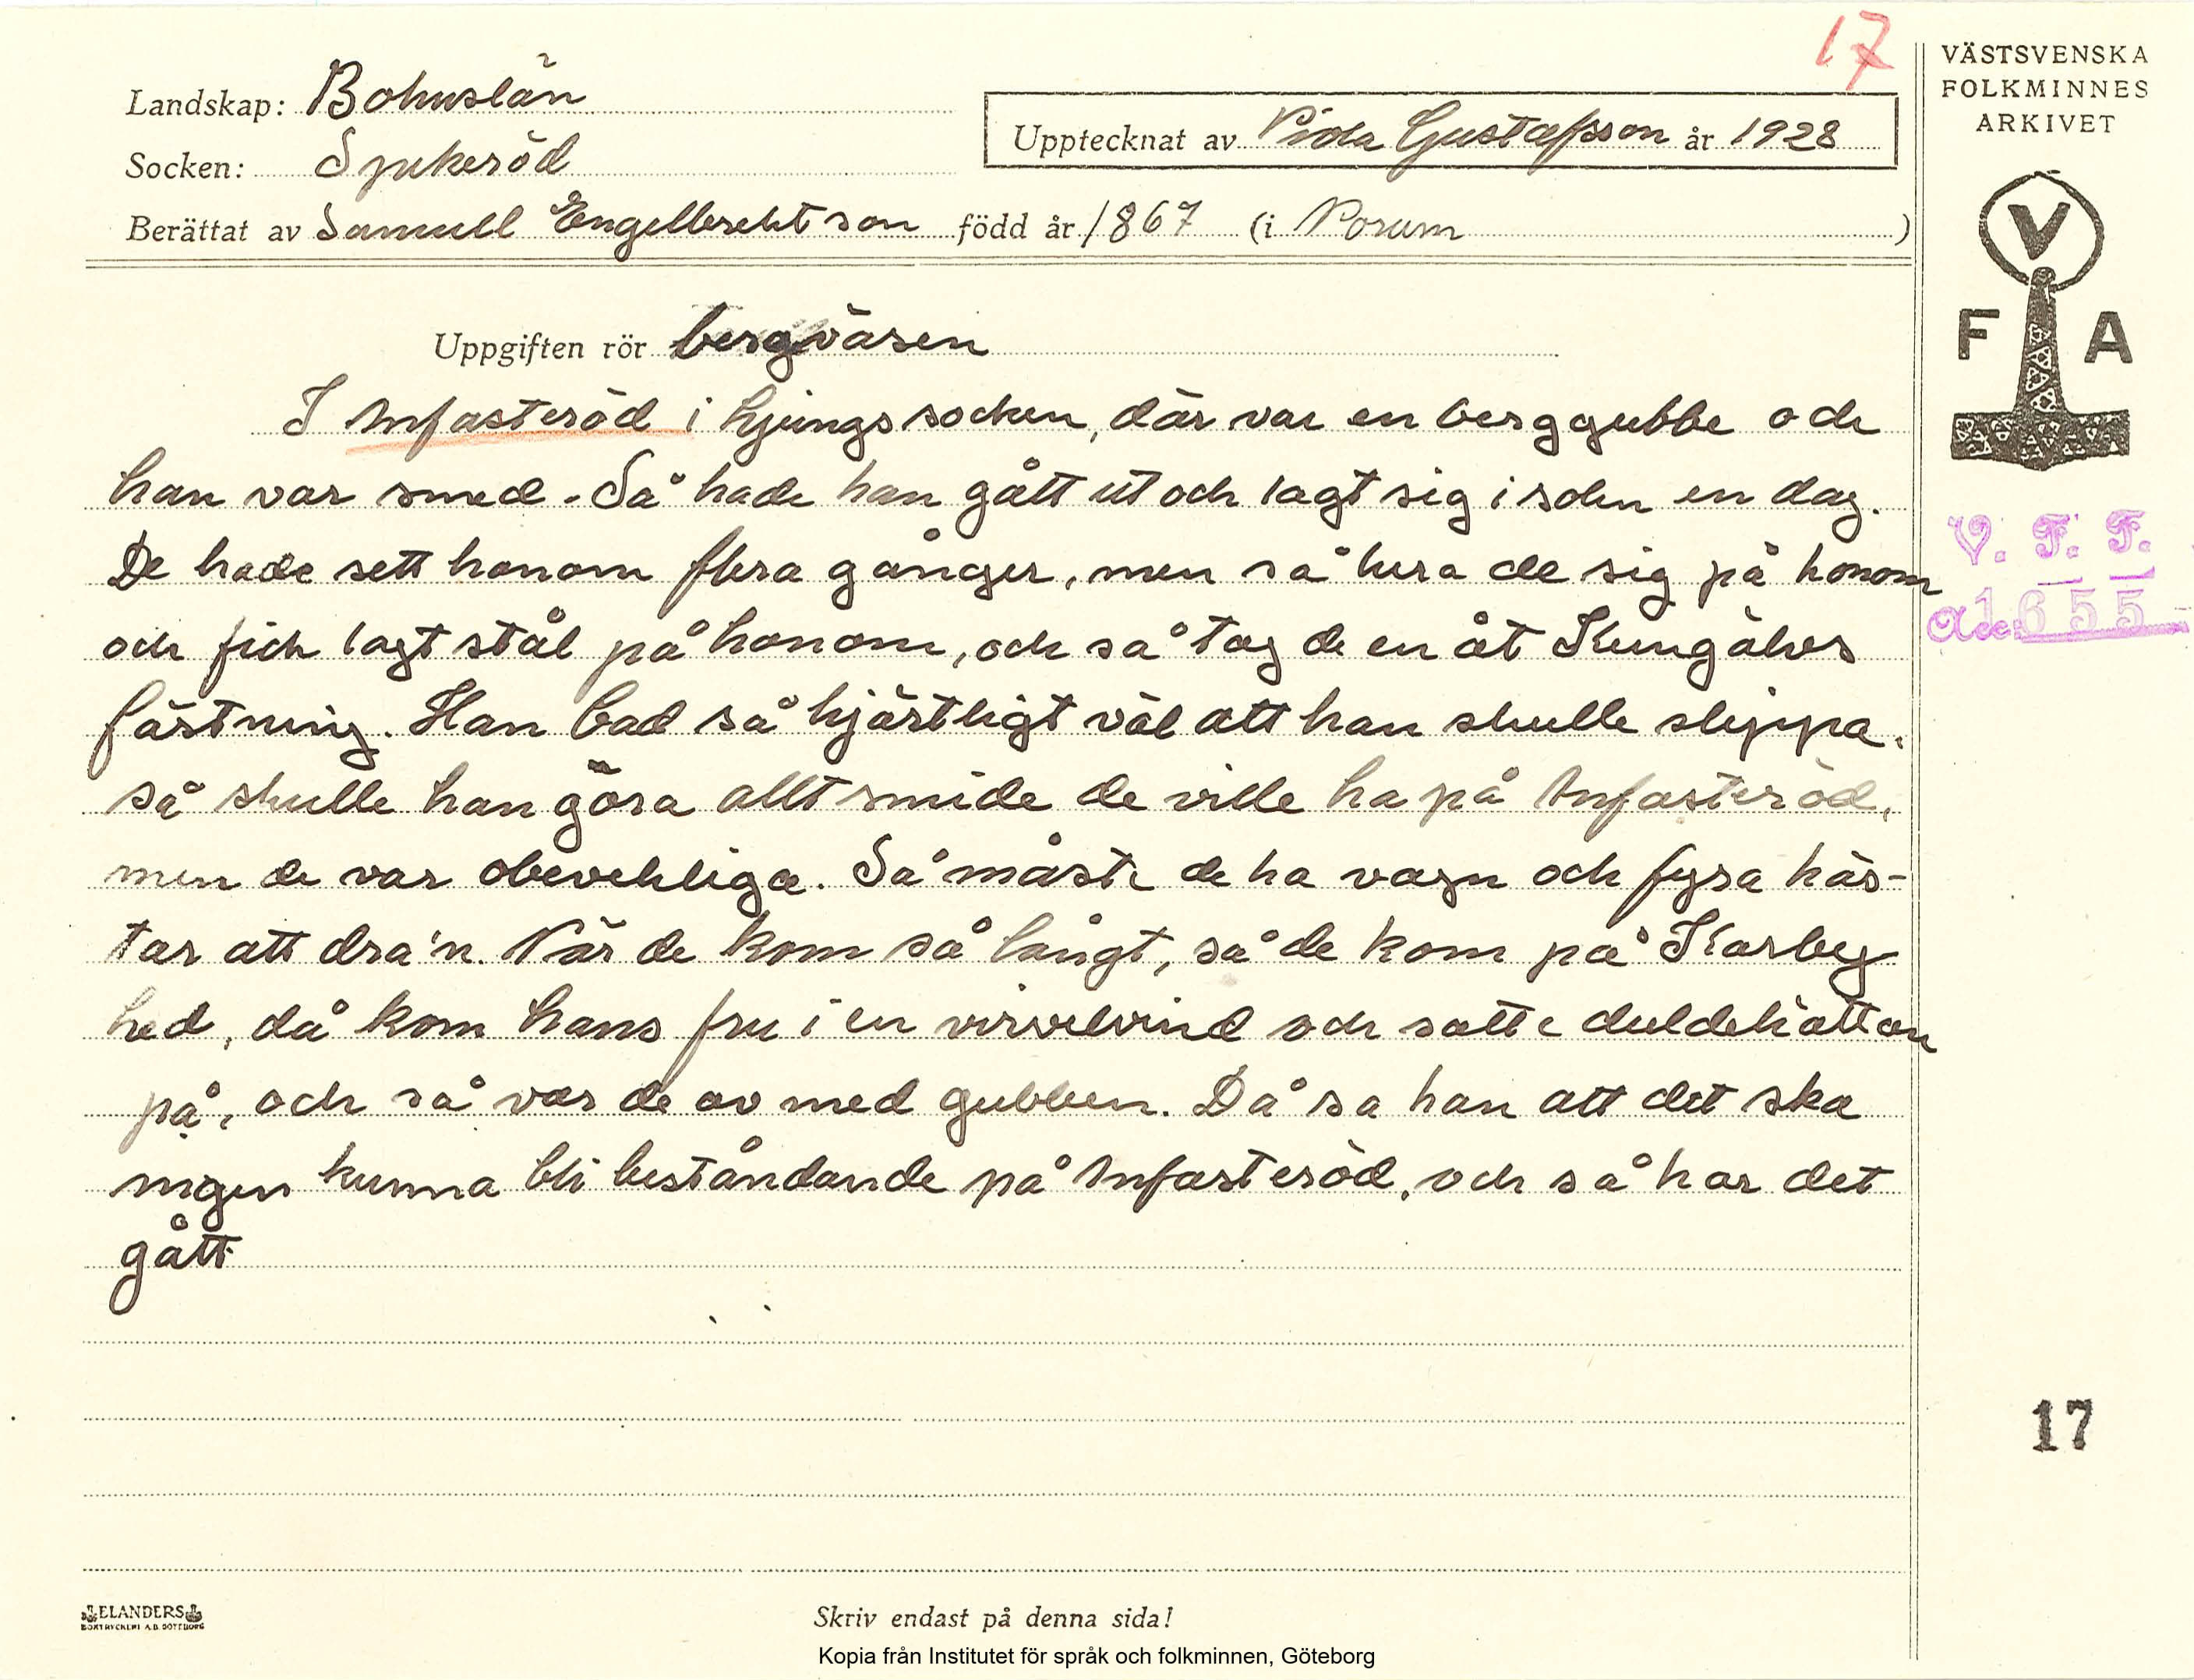 17
VÄSTSVENSKA
FOLKMINNES
ARKIVET
Landskap: Bohuslän
Upptecknat av Vida Gustafsson år 1928
Socken: Spekeröd
Berättat av Samuell Engelbrektson född år 1867 (i Norum)
V
F A
V. F. F.
Acc 1655
Uppgiften rör bergväsen
I Anfasteröd i Ljungs socken, där var en berggubbe och
han var smed. Så hade han gått ut och lagt sig i solen en dag.
De hade sett honom flera gånger, men så lura de sig på honom
och fick lagt stål på honom, och så tog de en åt Kungälvs
fästning. Han bad så hjärtligt väl att han skulle slippa,
så skulle han göra allt smide de ville ha på Anfasteröd,
men de var obevekliga. Så måste de ha vagn och fyra häs-
tar att dra'n. När de kom så långt, så de kom på Karleby
hed, då kom hans fru i en virvelvind och satte duldehättan
på, och så var de av med gubben. Då sa han att det ska
ingen kunna bli beståndande på Anfasteröd, och så har det
gått.
17
ELANDERS
BOKTRYCKERI A.B. GÖTEBORG
Skriv endast på denna sida!
Kopia från Institutet för språk och folkminnen, Göteborg